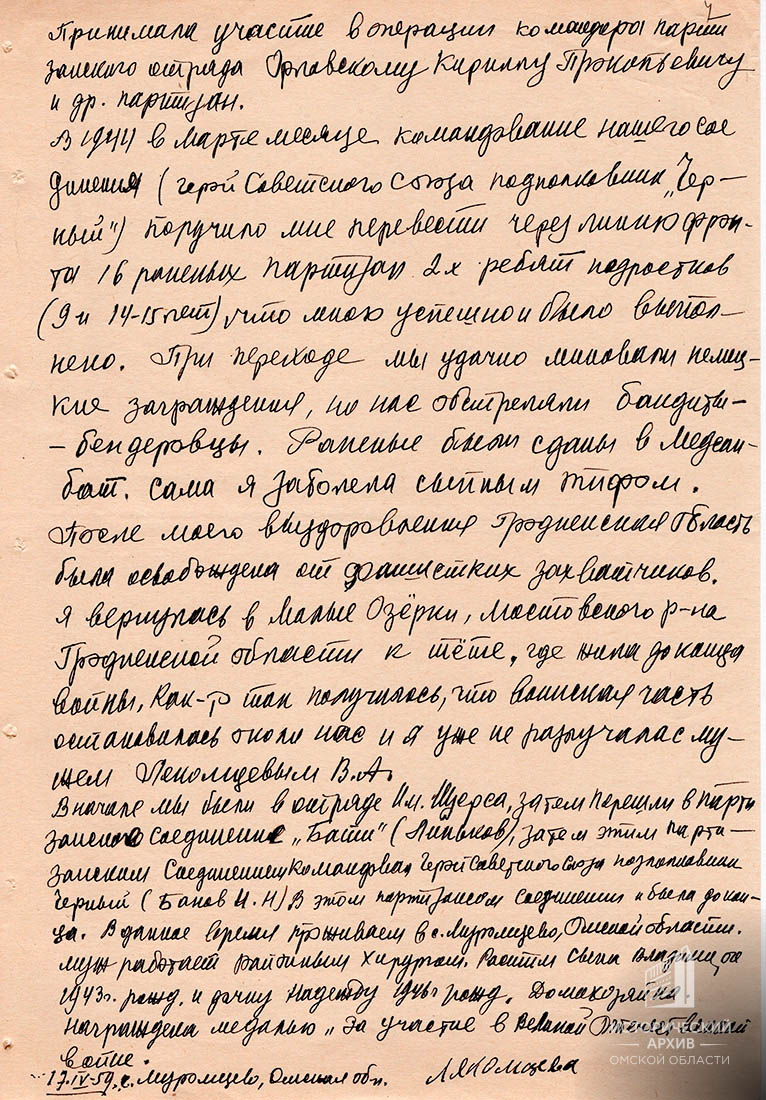 4
Принимала участие в операции командера парти
занского отряда Орловскому Кириллу Прокопьевичу
и др. партизан.
В 1944 в марте месяце командование нашего сое
динения (герой Советского Союза подполковник „Чер-
ный") поручило мне перевести через линию фрон-
та 16 раненых партизан 2х ребят подростков
(9 и 14-15 лет), что мною успешно и было выпол-
нено. При переходе мы удачно миновали немец-
кие заграждения, но нас обстреляли бандиты-
- бендеровцы. Раненые были сданы в Медсан-
бат. Сама я заболела сыпным тифом.
После моего выздоровления Гродненская область
была освобождена от фашистких захватчиков.
Я вернулась в Малые Озёрки, Мостовского р-на
Гродненской области к тёте, где жила до конца
войны, Как-то так получилось, что воинская часть
остановилась около нас и я уже не разлучалас му-
жем Лекомцевым В.А.
Вначале мы были в отряде Им. Щорса, затем перешли в парти
занское соединение „Бати" (Линьков), затем этим парти-
занским Соединением командовал Герой Советского Союза подполковник
Черный (Банов И.Н) В этом партизанском соединении и была до кон-
ца. В данное время проживаем в с. Муромцево, Омской области.
муж работает районным хирургом. Растим сына
1943г. рожд. и дочку Надежду 1946г рожд. Домохозяйка.
Награждена медалью „За участие в Великой Отечественной
войне.
17.IV-59, с. Муромцево, Омская обл. Лекомцева
ИСТОРИЧЕСКИЙ
АРХИВ
ОМСКОЙ ОБЛАСТИ